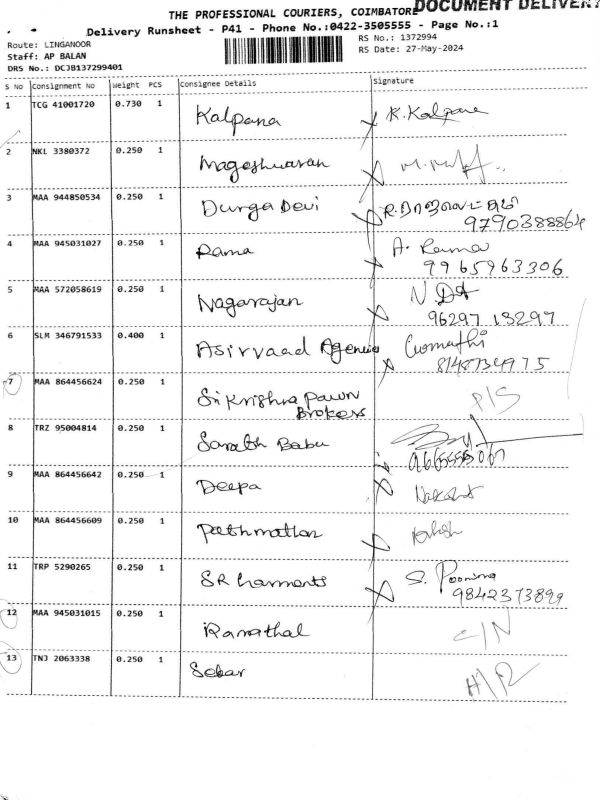 THE PROFESSIONAL COURIERS, COIMBATORE DOCUMENT DELIVERY
Delivery Runsheet - P41 - Phone No.:0422-3505555 - Page No.:1
Route: LINGANOOR RS No.: 1372994
Staff: AP BALAN RS Date: 27-May-2024
DRS No.: DCJB137299401
S No Consignment No Weight PCS Consignee Details Signature
1 TCG 41001720 0.730 1 Kalpana K. Kalpana
2 NKL 3380372 0.250 1 Mageshwaran
3 MAA 944850534 0.250 1 Durga Devi
9790388864
4 MAA 945031027 0.250 1 Rama A. Rama
9965963306
5 MAA 572058619 0.250 1 Nagarajan
96297 13297
6 SLM 346791533 0.400 1 Asirvaad Agencies Gomathi
8148734975
7 MAA 864456624 0.250 1 Sri Krishna Pawn P/S
Brokers
8 TRZ 95004814 0.250 1 Sarath Babu
9 MAA 864456642 0.250 1 Deepa
10 MAA 864456609 0.250 1
11 TRP 5290265 0.250 1 SR Garments S. Poornima
9842373899
12 MAA 945031015 0.250 1 Ramathal C/N
13 TNJ 2063338 0.250 1 Sekar H/R